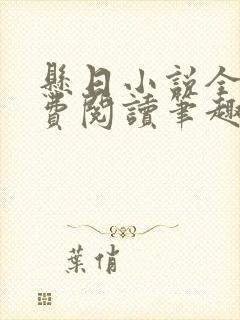 懸日小說全
費閱讀筆趣
葉俏